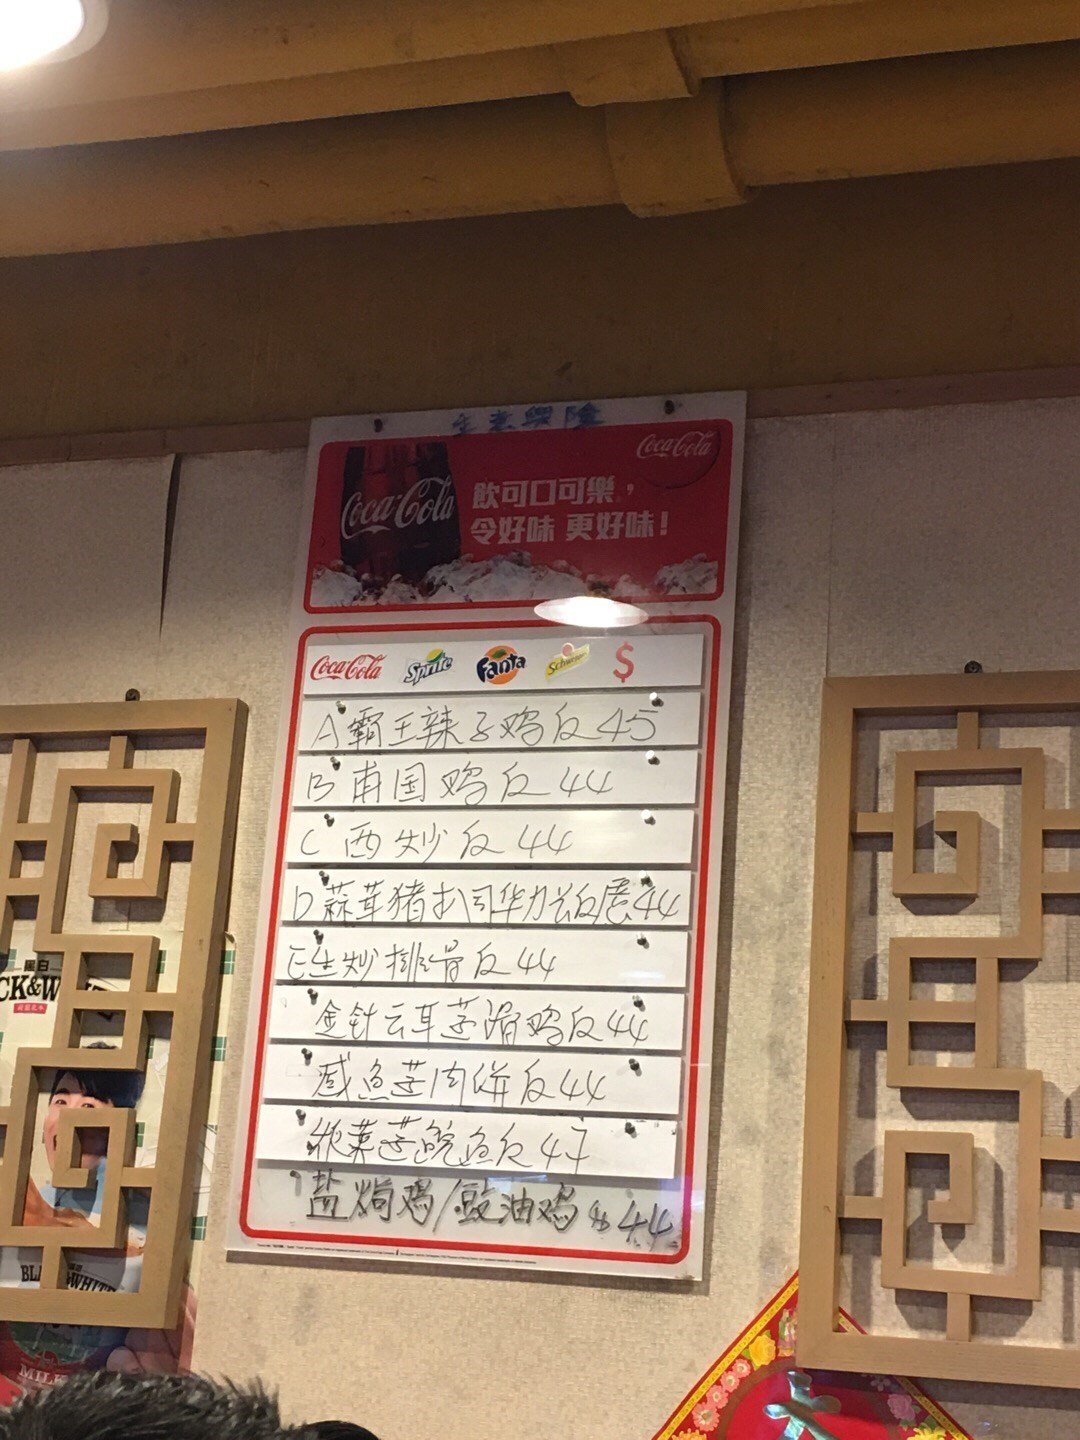 Coca-Cola
Coca-Cola
飲可口可樂，
令好味 更好味！
Coca-Cola Sprite Fanta Schweppes $
A 霸王辣子鸡反 45
B 南国鸡反 44
C 西炒反 44
D 蒜茸猪扒司华力 44
E 生炒排骨反 44
金针云耳蒸滑鸡反 44
咸鱼蒸肉餅反 44
菜蒸鲩鱼反 47
盐焗鸡/豉油鸡 $44
黑白
CK&W
BLA WHITE
MILK